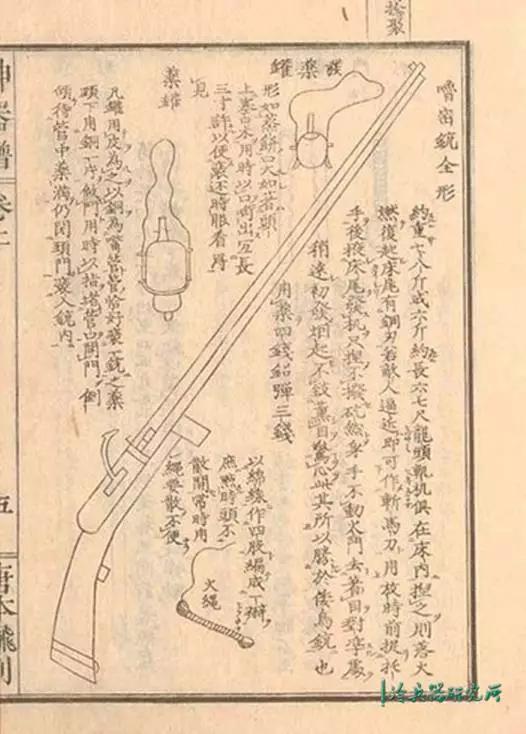 拾聚
嚕密銃全形
約重七八斤或六斤約長六七尺龍頭軌机俱在床內捏之則落火
燃復起床尾有鋼刃若敵人逼近即可作斬馬刀用放時前提托
手後掖床尾發机只捏不撥砣然身手不動火門去著目對準處
稍遠初發烟起不致薰目驚心此其所以勝於倭鳥銃也
用藥四錢鉛彈三錢
發藥罐
形如蒸餅口大如
上塞口木用時以口啣出 長
三寸許以便裝還時眼看得
見
藥罐
凡罐用皮為之以銅為嘴管管恰好裝一銃之藥
頭下用銅一片做門用時以指堵管口開門倒
傾待管中藥滿仍閉頭門裝入銃內
以綿線作四股編成一辮
庶點時頭不
散開常時用
繩要散不便
火繩
神器譜 卷二
五
唐本飜刻
冷兵器研究所